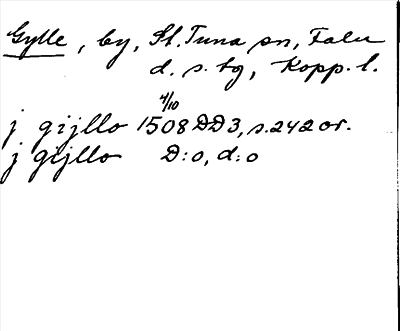 Gylle, by, St. Tuna sn, Falu
d. s. tg, Kopp. l.
4/10
j gijllo 1508 DD3, s. 242 or.
j gijllo D:o, d:o